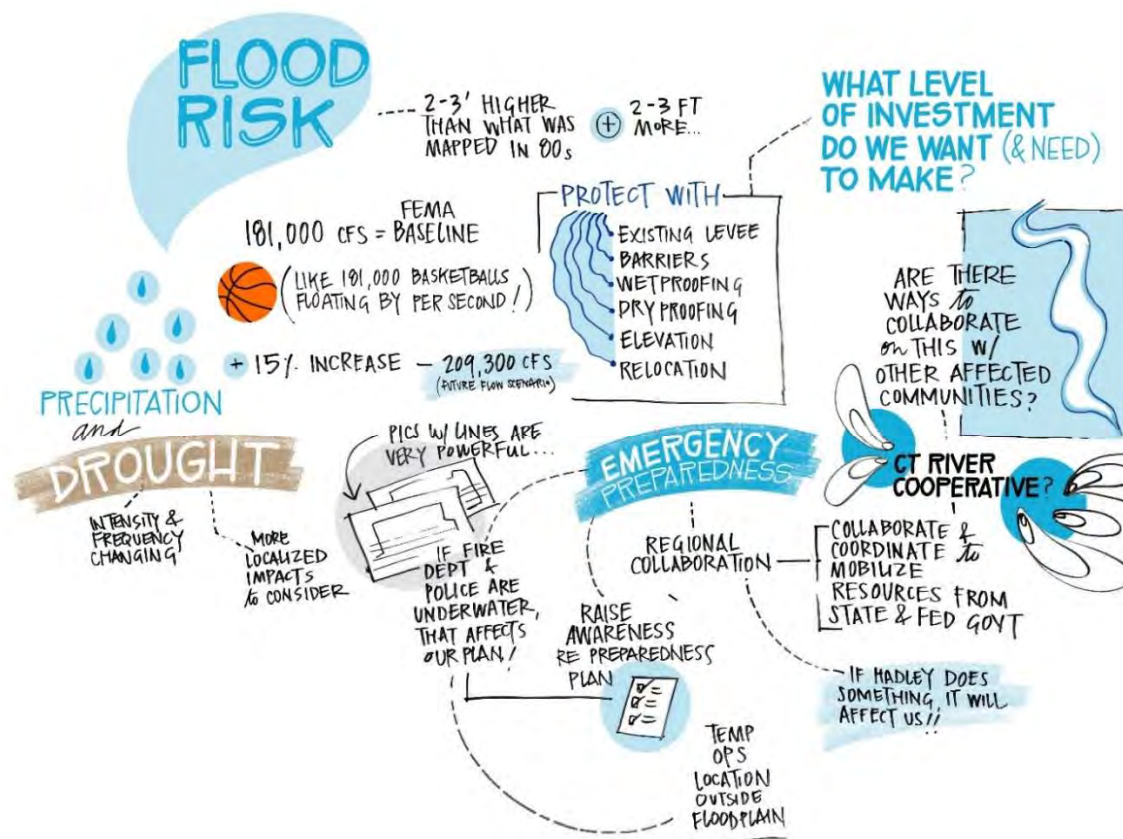 FLOOD
RISK
2-3' HIGHER
THAN WHAT WAS
MAPPED IN 80s
+
2-3 FT
MORE...
WHAT LEVEL
OF INVESTMENT
DO WE WANT (& NEED)
TO MAKE?
181,000 CFS = FEMA BASELINE
(LIKE 181,000 BASKETBALLS
FLOATING BY PER SECOND!)
+ 15% INCREASE – 209,300 CFS
(FUTURE FLOW SCENARIO)
PROTECT WITH
EXISTING LEVEE
BARRIERS
WETPROOFING
DRYPROOFING
ELEVATION
RELOCATION
ARE THERE
WAYS to
COLLABORATE
on THIS W/
OTHER AFFECTED
COMMUNITIES?
CT RIVER
COOPERATIVE?
PRECIPITATION
and
DROUGHT
INTENSITY &
FREQUENCY
CHANGING
MORE
LOCALIZED
IMPACTS
to CONSIDER
PICS W/ LINES ARE
VERY POWERFUL...
IF FIRE
DEPT &
POLICE ARE
UNDERWATER,
THAT AFFECTS
OUR PLAN!
EMERGENCY
PREPAREDNESS
REGIONAL
COLLABORATION
COLLABORATE &
COORDINATE to
MOBILIZE
RESOURCES FROM
STATE & FED GOVT
RAISE
AWARENESS
RE PREPAREDNESS
PLAN
IF HADLEY DOES
SOMETHING, IT WILL
AFFECT US!!
TEMP
OPS
LOCATION
OUTSIDE
FLOODPLAIN